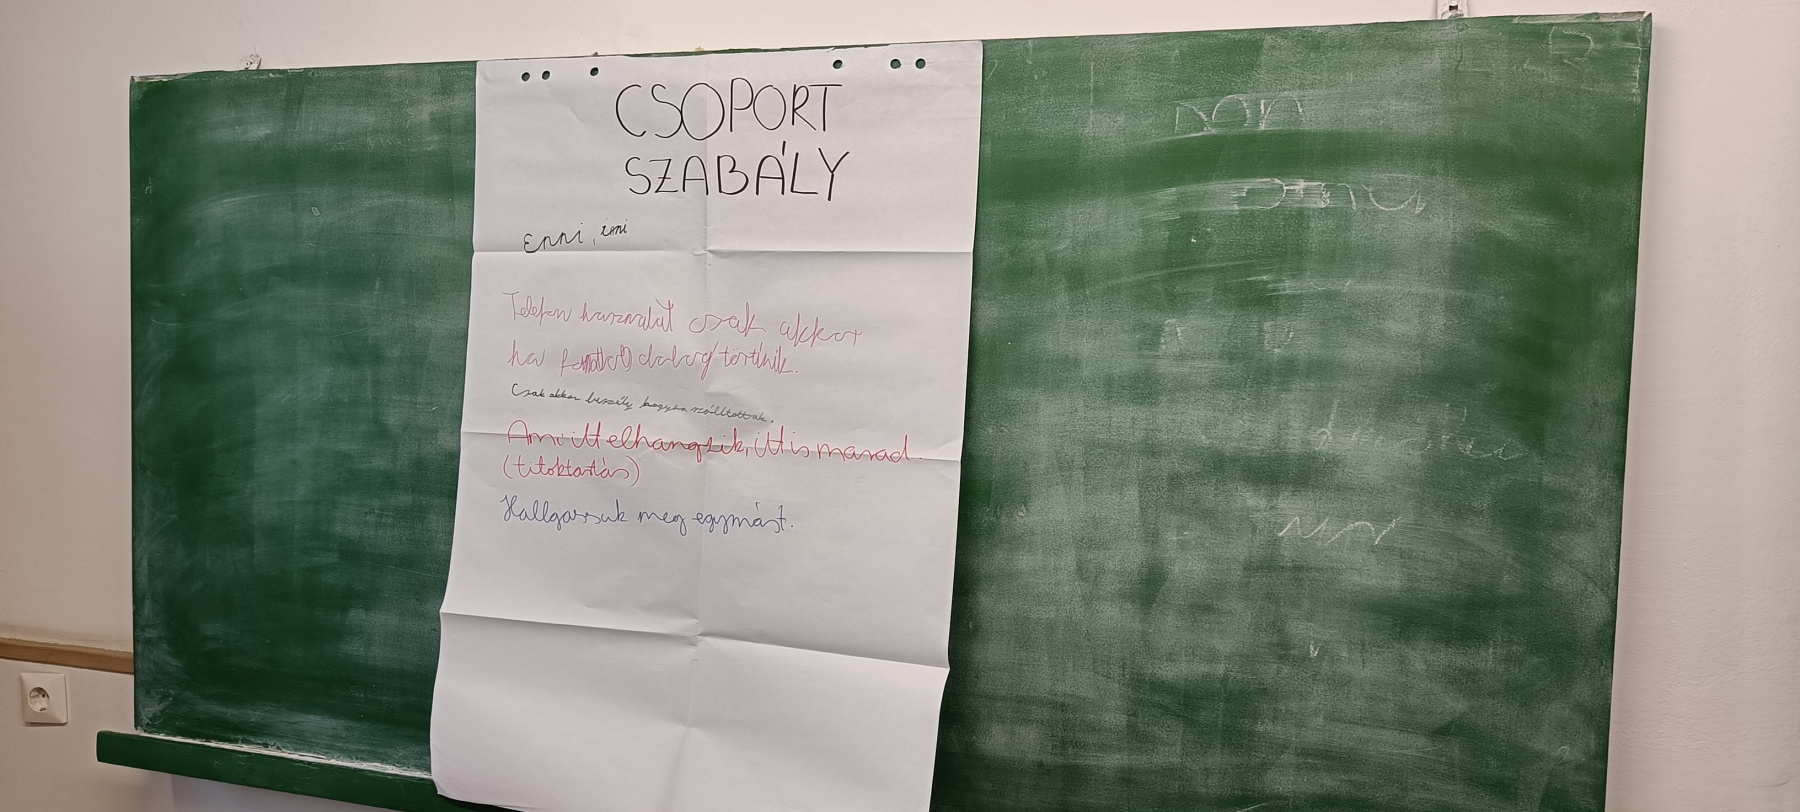 CSOPORT
SZABÁLY
Enni, inni
Telefon használat csak akkor
ha dolog történik.
Csak akkor beszélj hogyan szólítottak.
Ami itt elhangzik, itt is marad.
(titoktartás)
Hallgassuk meg egymást.